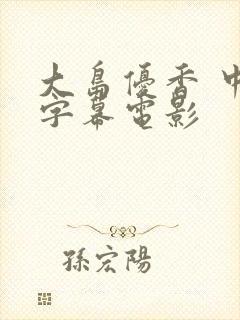 大島優香 中
字幕電影
孫宏陽